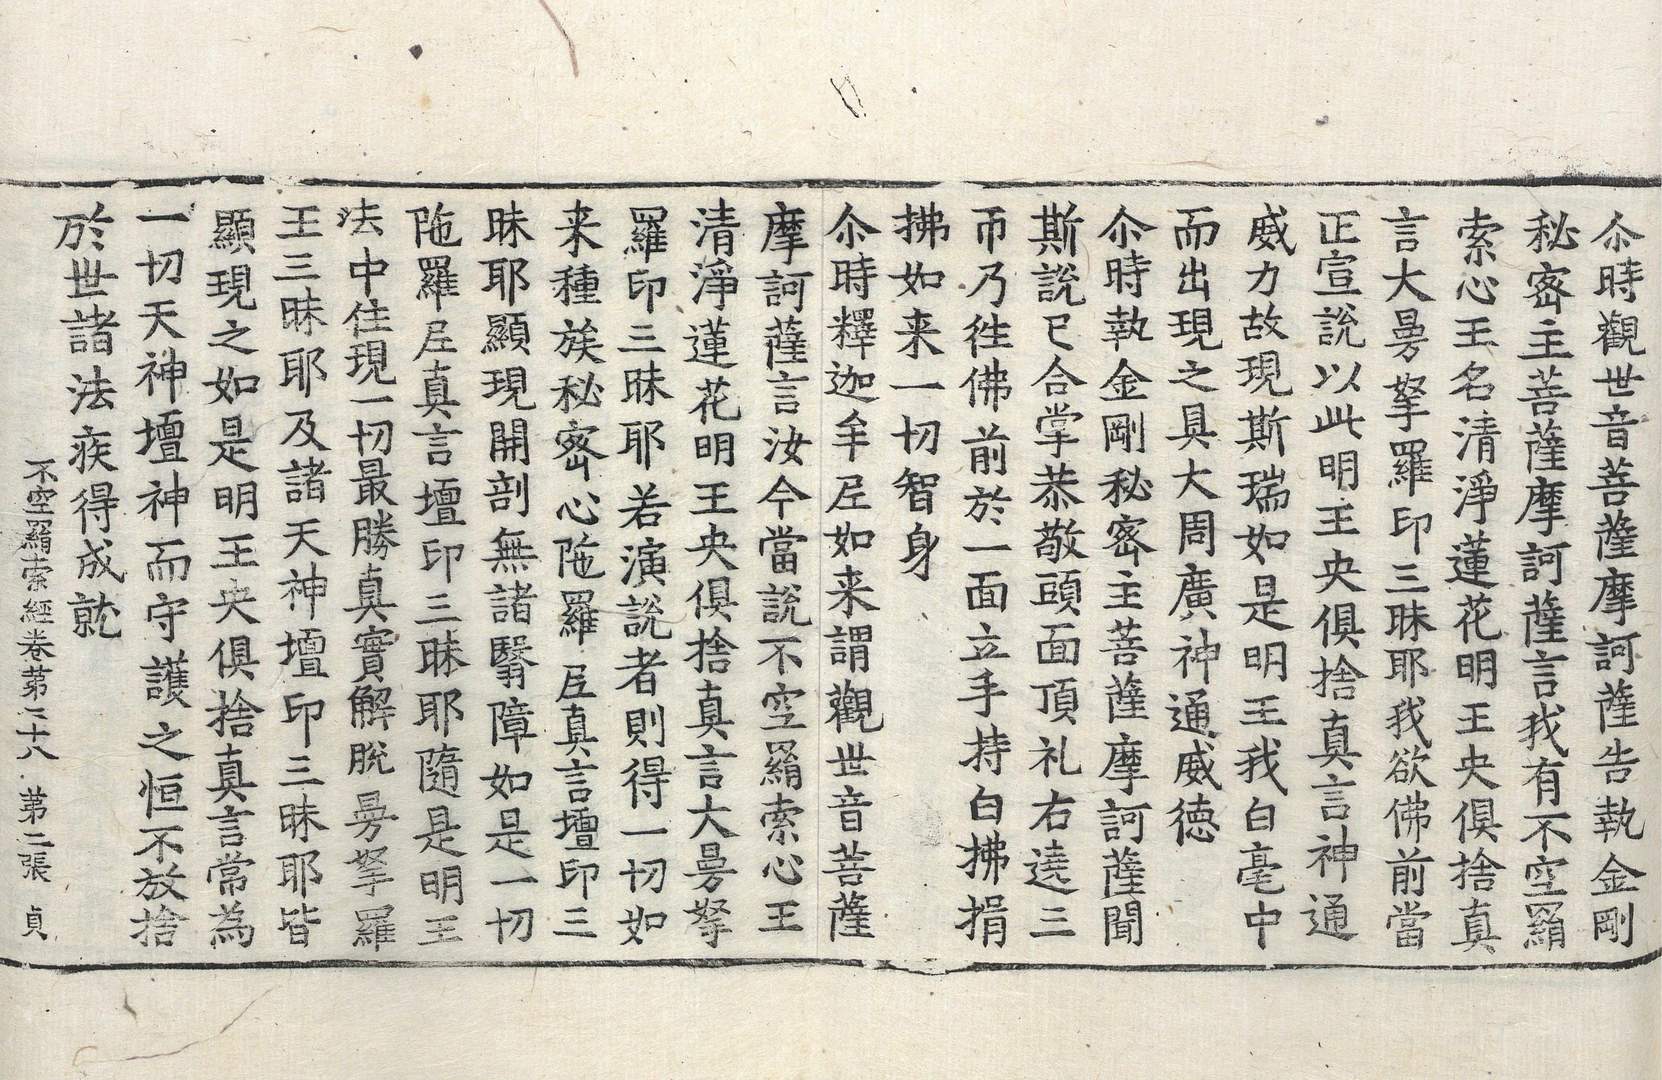 尒時觀世音菩薩摩訶薩告執金剛
秘密主菩薩摩訶薩言我有不空羂
索心王名清淨蓮花明王央俱捨真
言大曼拏羅印三昧耶我欲佛前當
正宣說以此明王央俱捨真言神通
威力故現斯瑞如是明王我白毫中
而出現之具大周廣神通威德
尒時執金剛秘密主菩薩摩訶薩聞
斯說已合掌恭敬頭面頂礼右遶三
帀乃徃佛前於一面立手持白拂捐
拂如来一切智身
尒時釋迦牟尼如来謂觀世音菩薩
摩訶薩言汝今當說不空羂索心王
清淨蓮花明王央俱捨真言大曼拏
羅印三昧耶若演說者則得一切如
来種族秘密心陁羅尼真言壇印三
昧耶顯現開剖無諸翳障如是一切
陁羅尼真言壇印三昧耶隨是明王
法中住現一切最勝真實解脫曼拏羅
王三昧耶及諸天神壇印三昧耶皆
顯現之如是明王央俱捨真言常為
一切天神壇神而守護之恒不放捨
於世諸法疾得成就
不空羂索經卷第二十八 第二張 貞